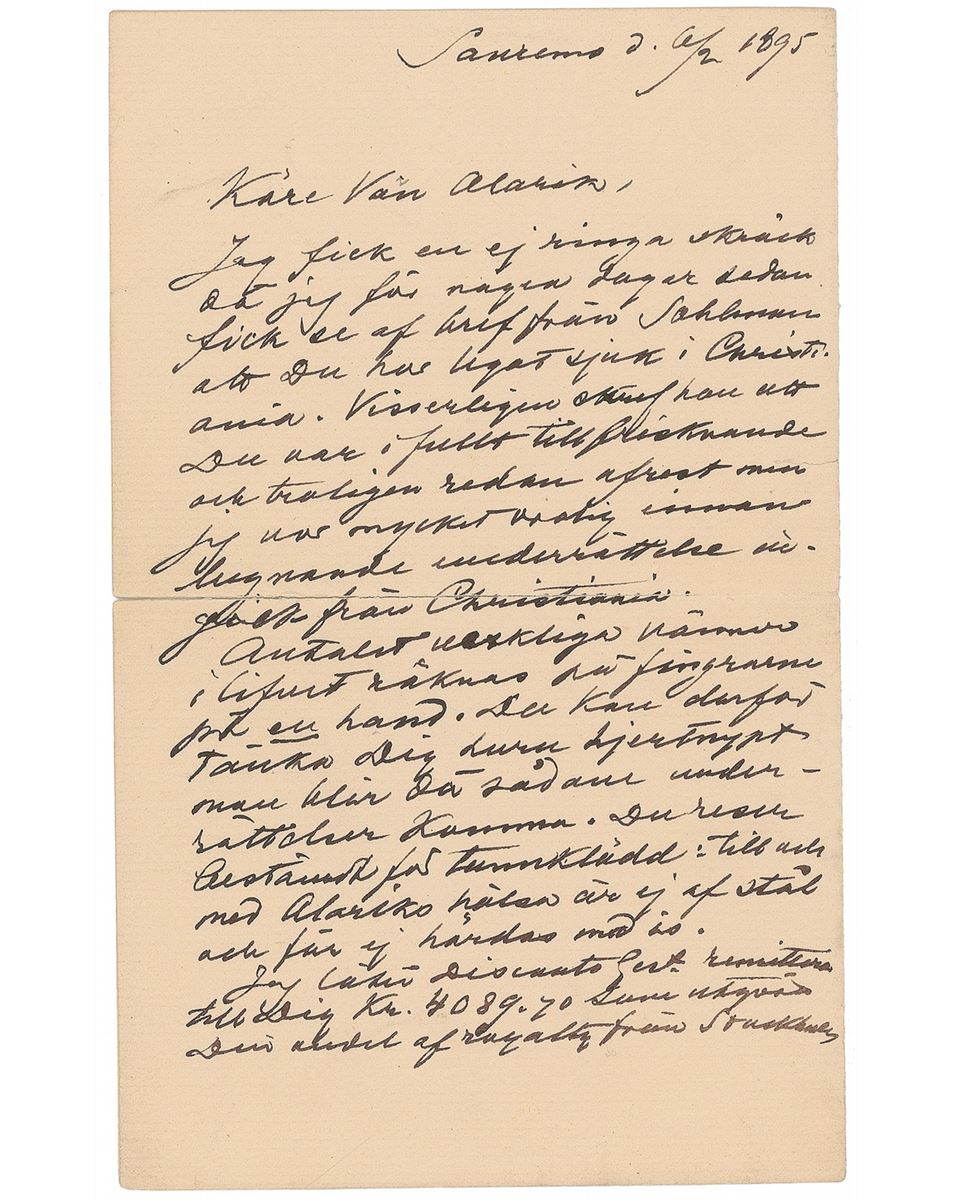 Sanremo d. 6/2 1895
Käre Vän Alarik,
Jag fick en ej ringa skräck
då jag för några dagar sedan
fick se af bref från Sohlman
att Du har legat sjuk i Christi-
ania. Visserligen skref han att
Du var i fullt tillfrisknande
och troligen redan afrest men
jag var mycket orolig innan
lugnande underrättelse in-
gick från Christiania.
Antalet verkliga vänner
i lifvet räknas på fingrarne
på en hand. Du kan derför
tänka Dig huru hjertnypt
man blir då sådane under-
rättelser komma. Du reser
bestämdt för tunnklädd: till och
med Alariks hälsa är ej af stål
och får ej härdas med is.
Jag låter Disconto Gest. remittera
till Dig Kr. 4089.70 som utgöra
Din andel af royalty från